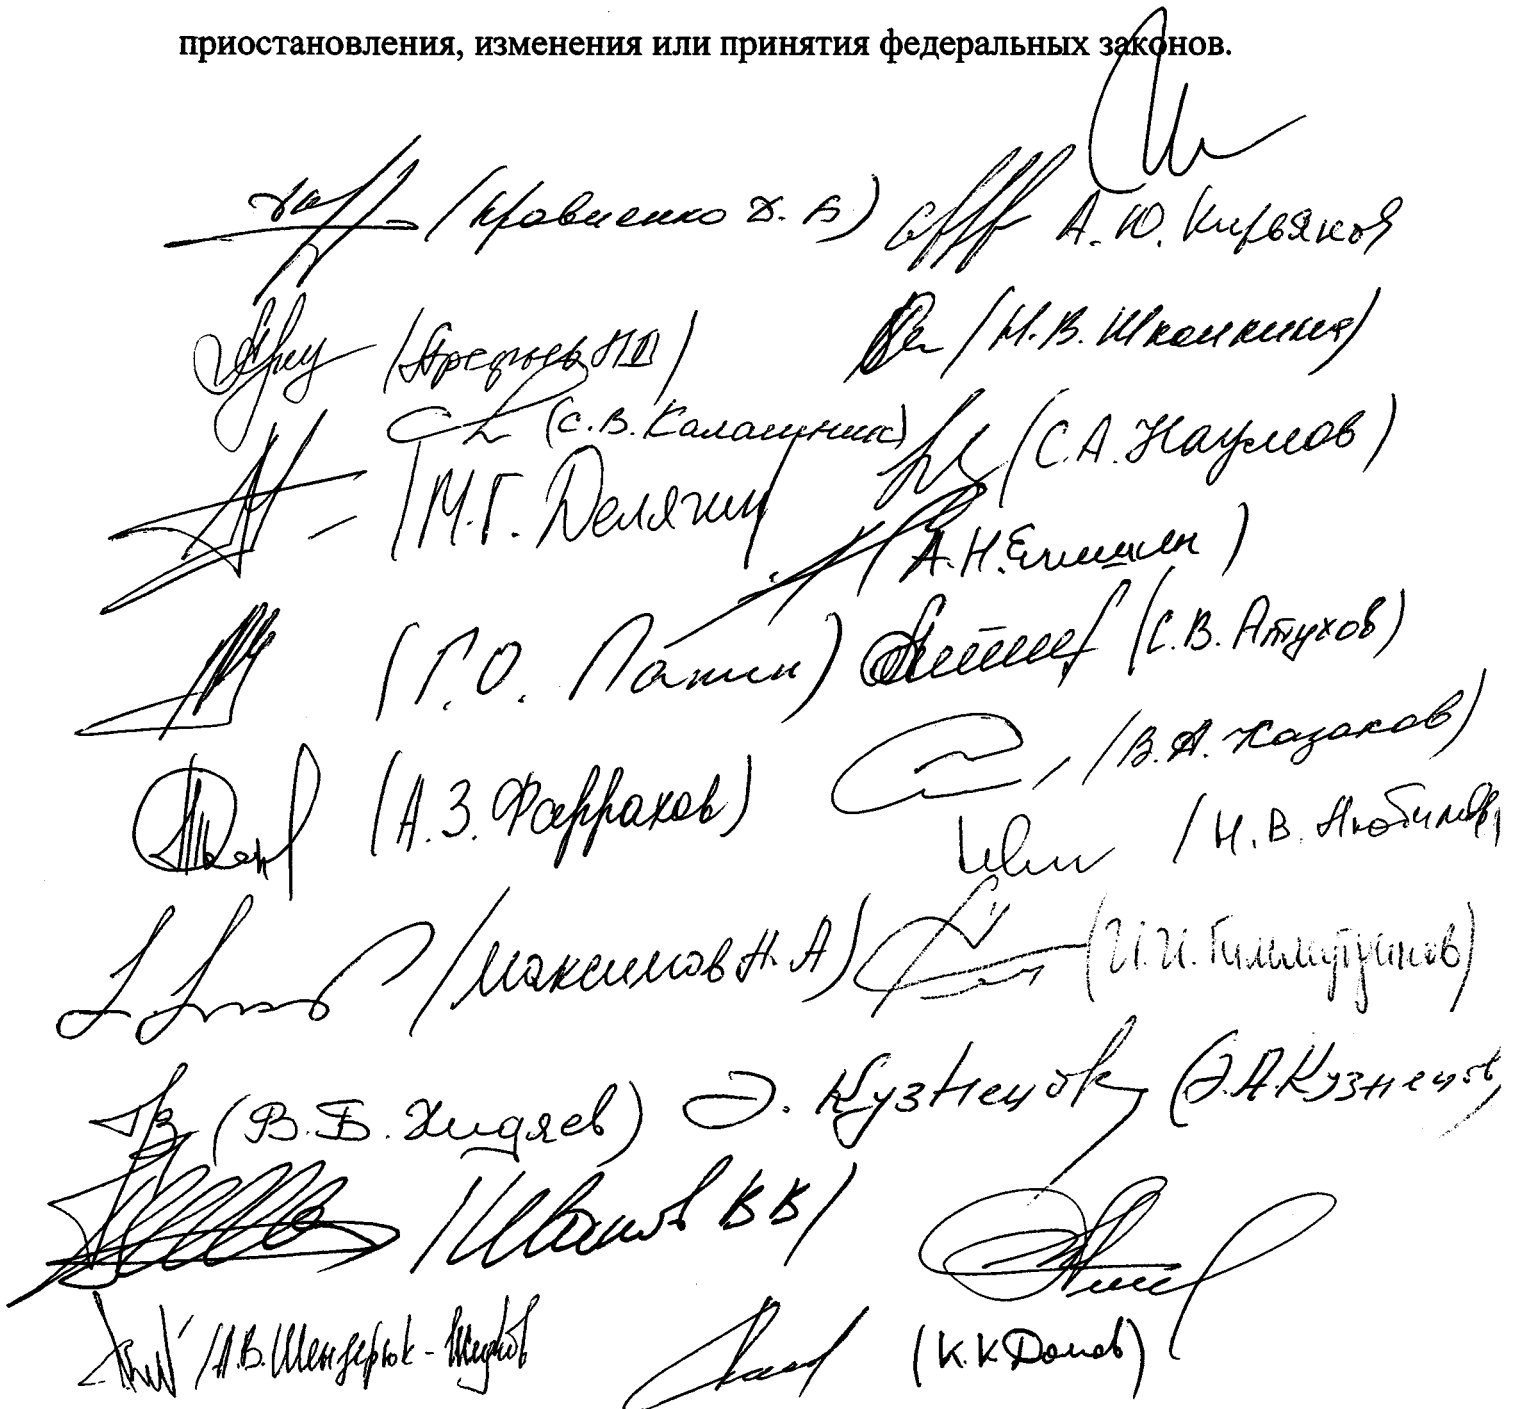 приостановления, изменения или принятия федеральных законов.
(Кравченко Д.Б) А.Ю. Кирьянов
(Арефьев НВ) (Н.В. Школкина)
(С.В. Калашник) (С.А. Наумов)
/М.Г. Делягин/
(А.Н. Ещин)
(Г.О. Панин) (С.В. Алтухов)
/В.А. Казаков)
(А.З. Фаррахов) /Н.В. Любимов/
/Максимов Н.А) (И.И. Гильмутдинов)
(В.Б. Хидяев) Э. Кузнецов (Э.А. Кузнецов)
/Иванов ВВ/
/А.В. Шендерюк-Жидков (К.К. Долгов)